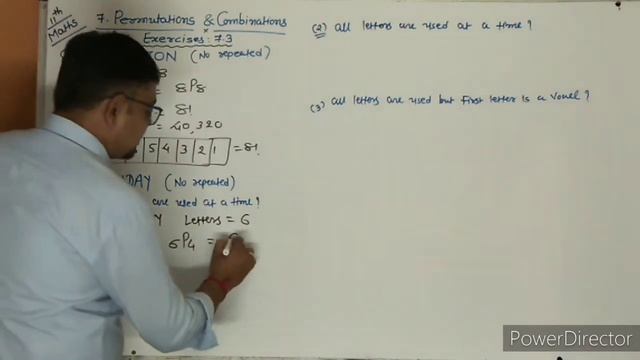 11th
Maths
7. Permutations & Combinations
Exercises: 7.3
ION (No repeated)
8
= 8P8
= 8!
= 40,320
5 4 3 2 1 = 8!
DAY (No repeated)
are used at a time?
Y Letters = 6
6P4 =
(2) all letters are used at a time?
(3) all letters are used but first letter is a vowel?
PowerDirector